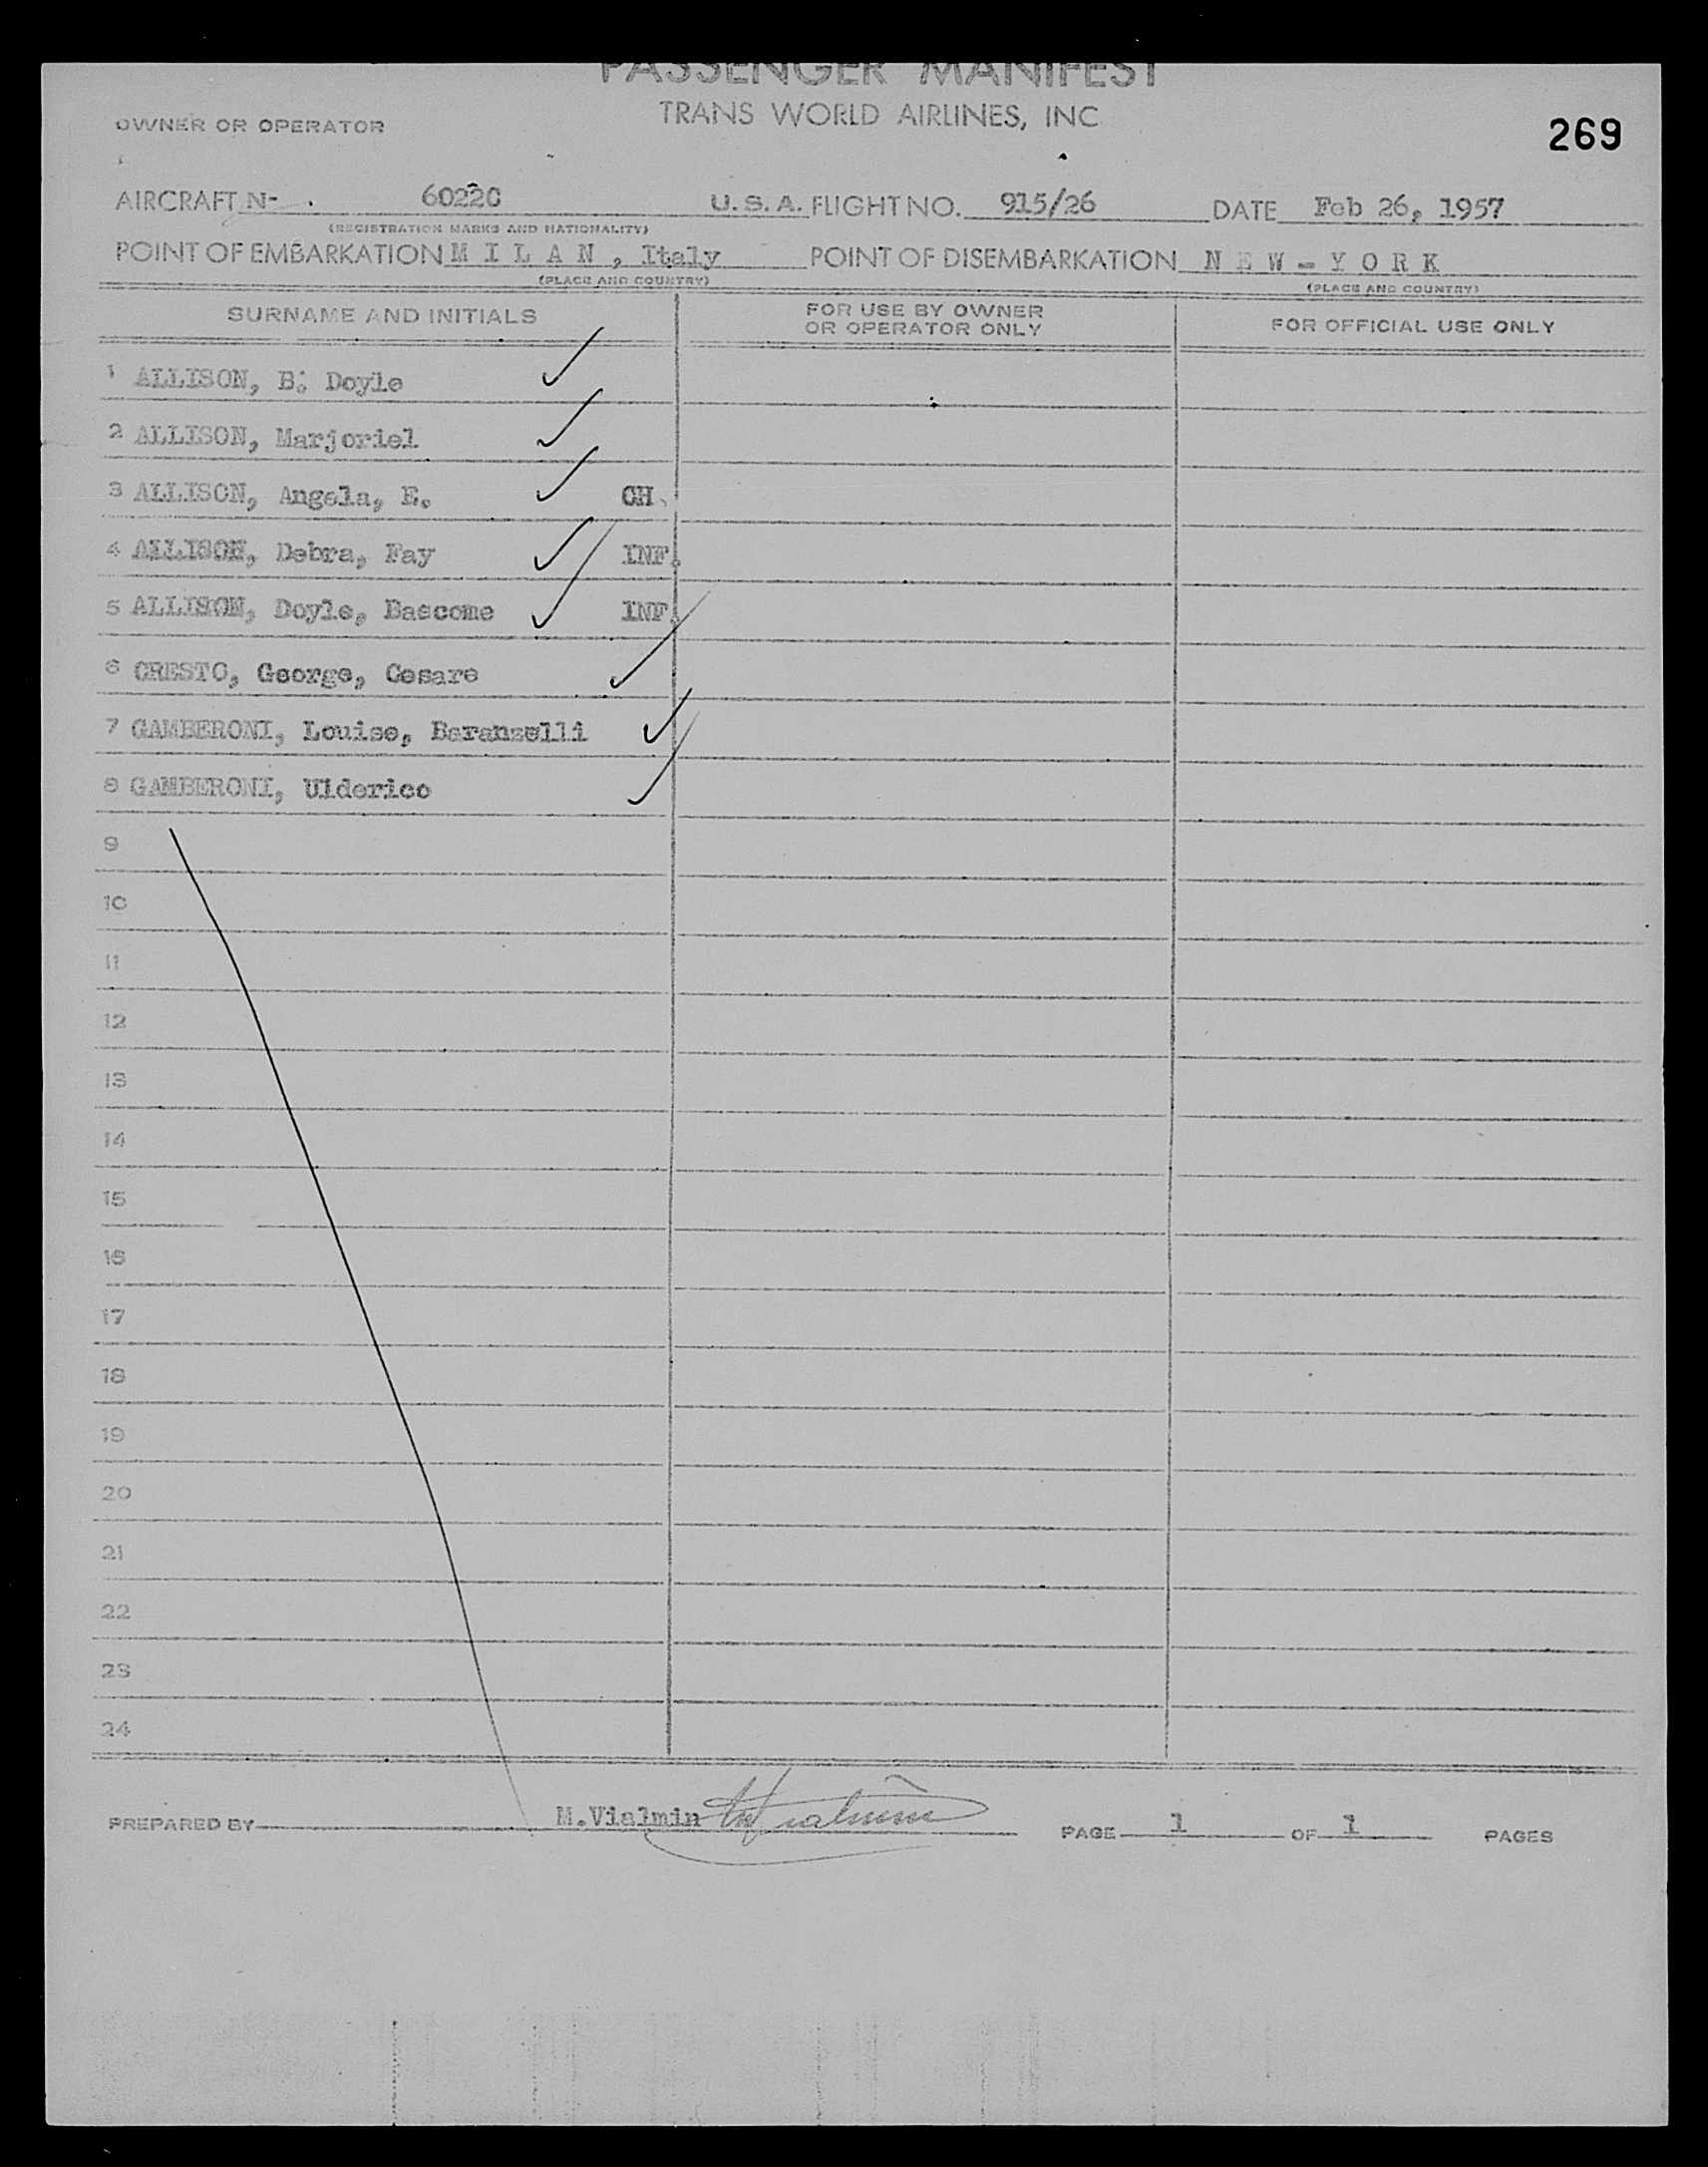 PASSENGER MANIFEST
TRANS WORLD AIRLINES, INC
OWNER OR OPERATOR
269
AIRCRAFT N- . 60220 U.S.A. FLIGHT NO. 915/26 DATE Feb 26, 1957
(REGISTRATION MARKS AND NATIONALITY)
POINT OF EMBARKATION M I L A N , Italy POINT OF DISEMBARKATION N E W - Y O R K
(PLACE AND COUNTRY) (PLACE AND COUNTRY)
SURNAME AND INITIALS FOR USE BY OWNER OR OPERATOR ONLY FOR OFFICIAL USE ONLY
1 ALLISON, B. Doyle
2 ALLISON, Marjoriel
3 ALLISON, Angela, E. CH.
4 ALLISON, Debra, Fay INF.
5 ALLISON, Doyle, Bascome INF.
6 CRESTO, George, Cesare
7 GAMBERONI, Louise, Baranzelli
8 GAMBERONI, Ulderico
9
10
11
12
13
14
15
16
17
18
19
20
21
22
23
24
PREPARED BY M.Vialmin PAGE 1 OF 1 PAGES